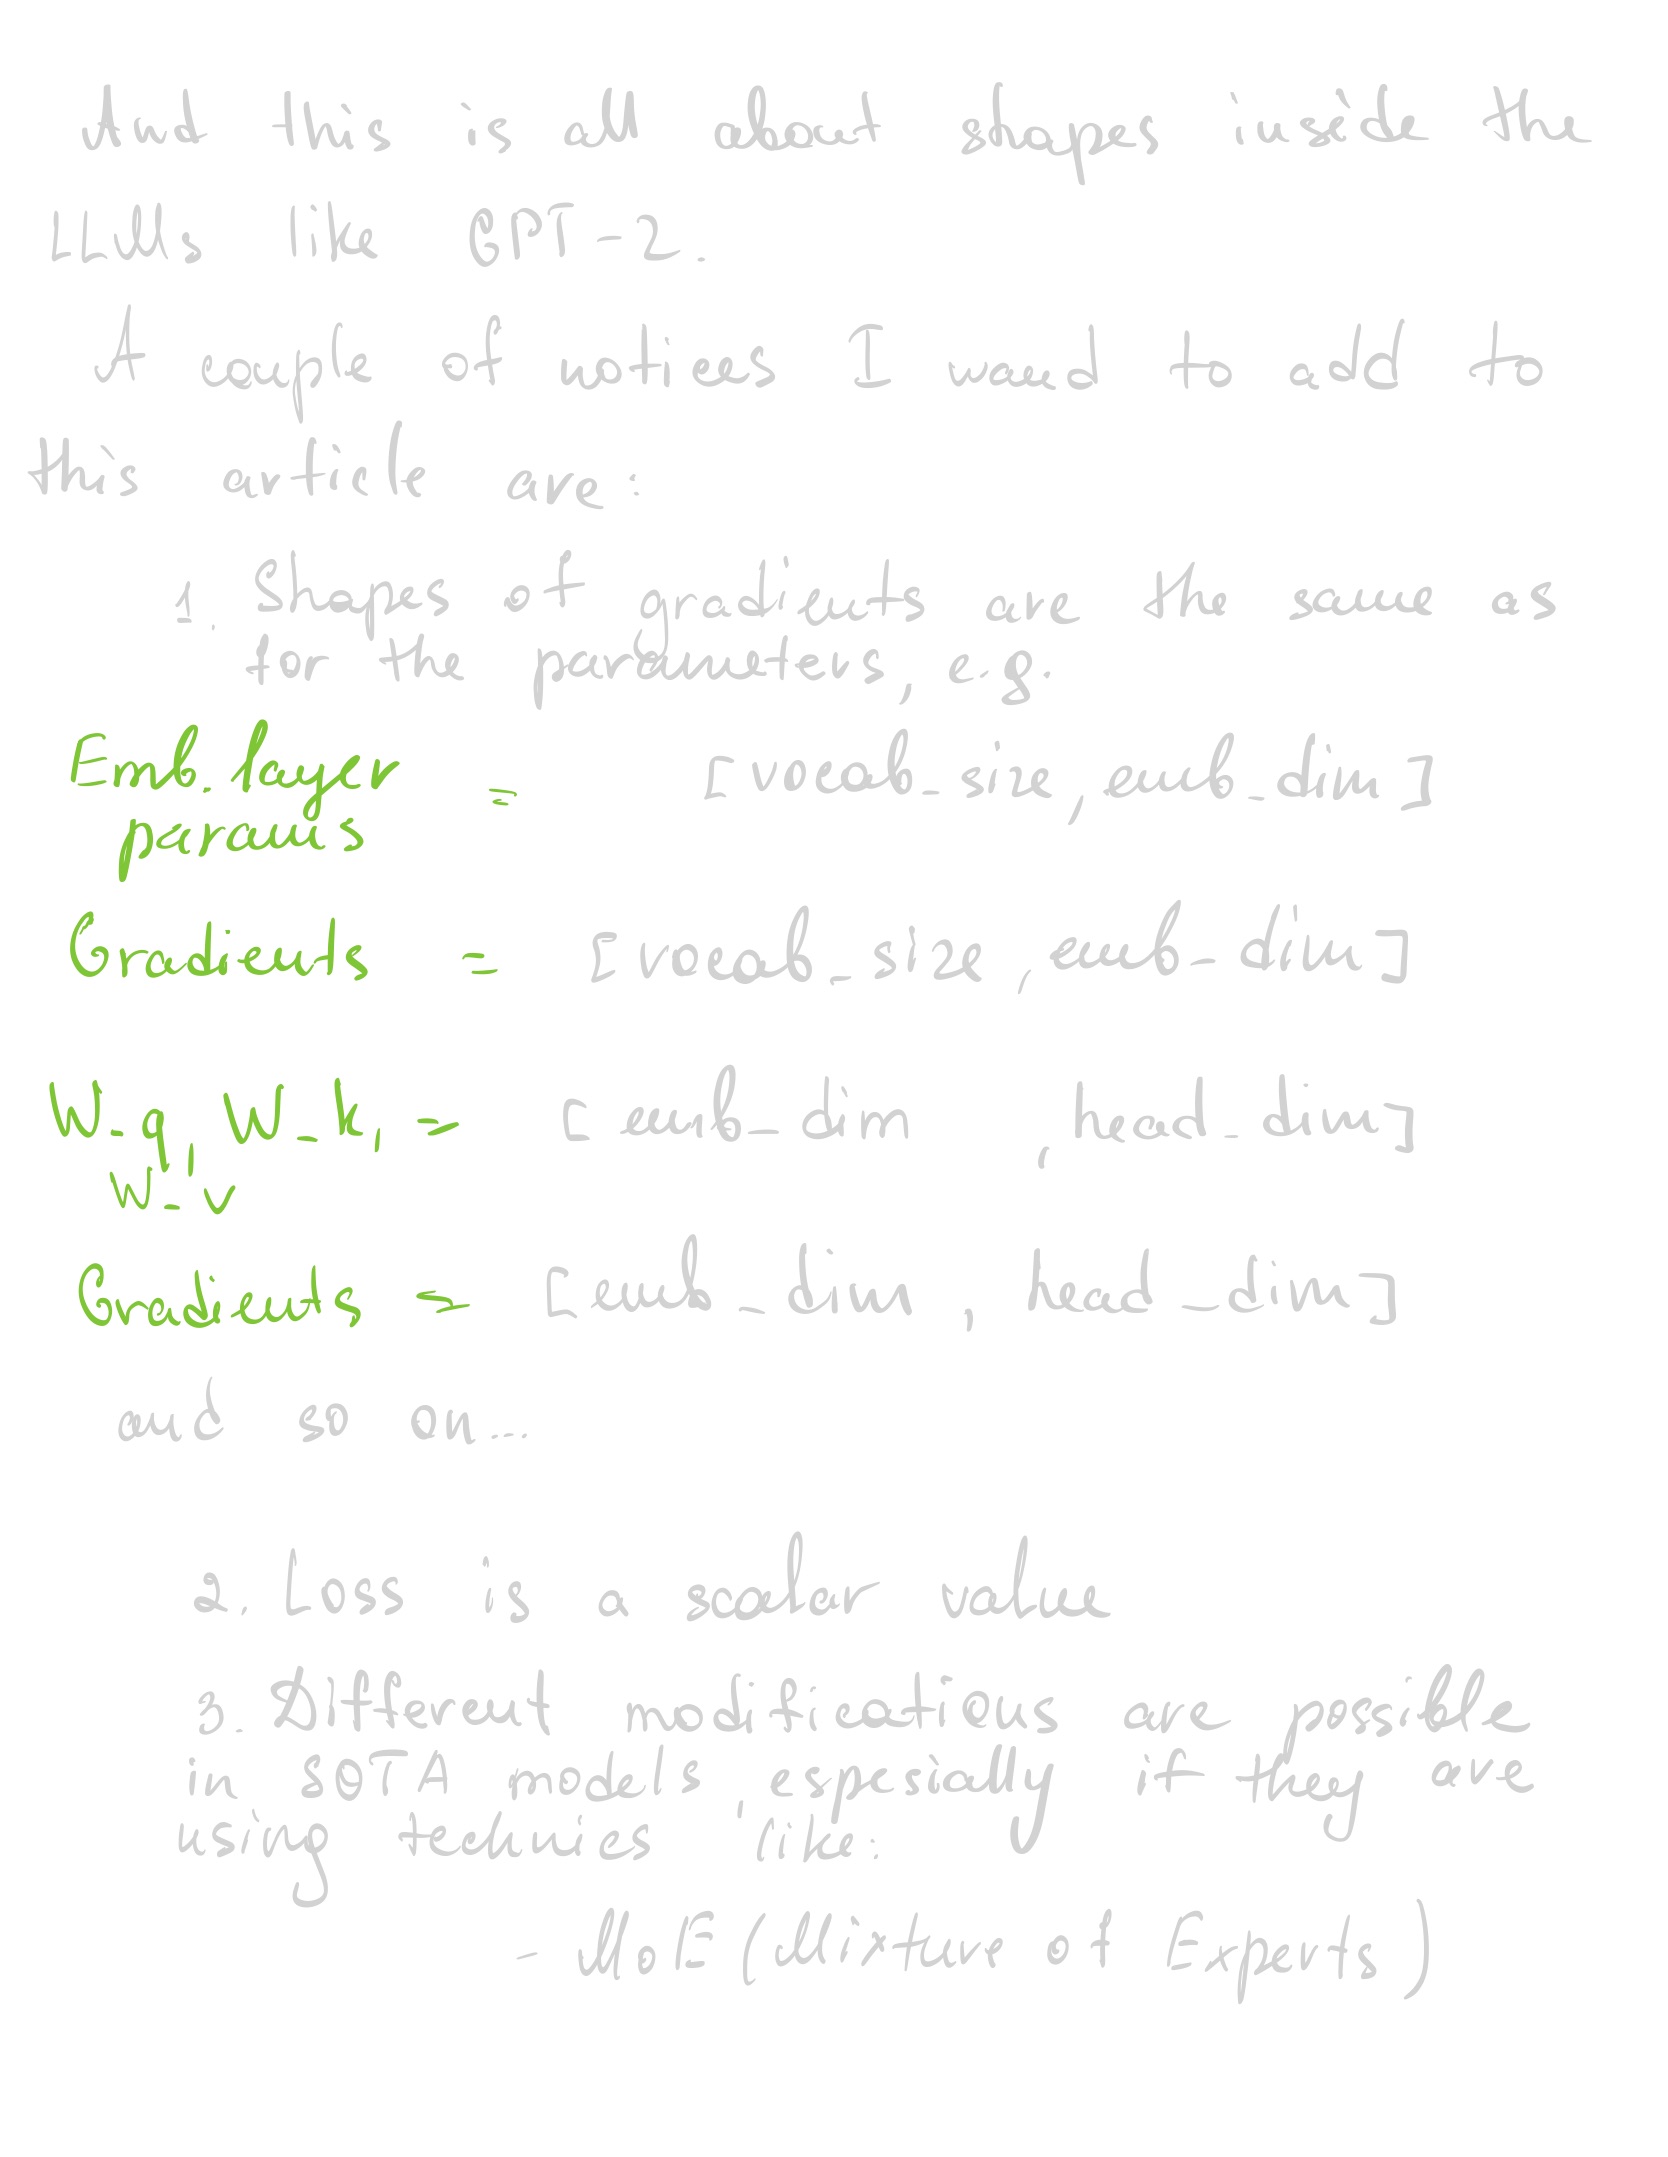 And this is all about shapes inside the
LLMs like GPT-2.
A couple of notices I want to add to
this article are:
1. Shapes of gradients are the same as
for the parameters, e.g.
Emb. layer = [vocab_size, emb_dim]
params
Gradients = [vocab_size, emb_dim]
W_q, W_k, = [emb_dim , head_dim]
W_v
Gradients = [emb_dim , head_dim]
and so on...
2. Loss is a scalar value
3. Different modifications are possible
in SOTA models, espesially if they are
using technics like:
- MoE (Mixture of Experts)